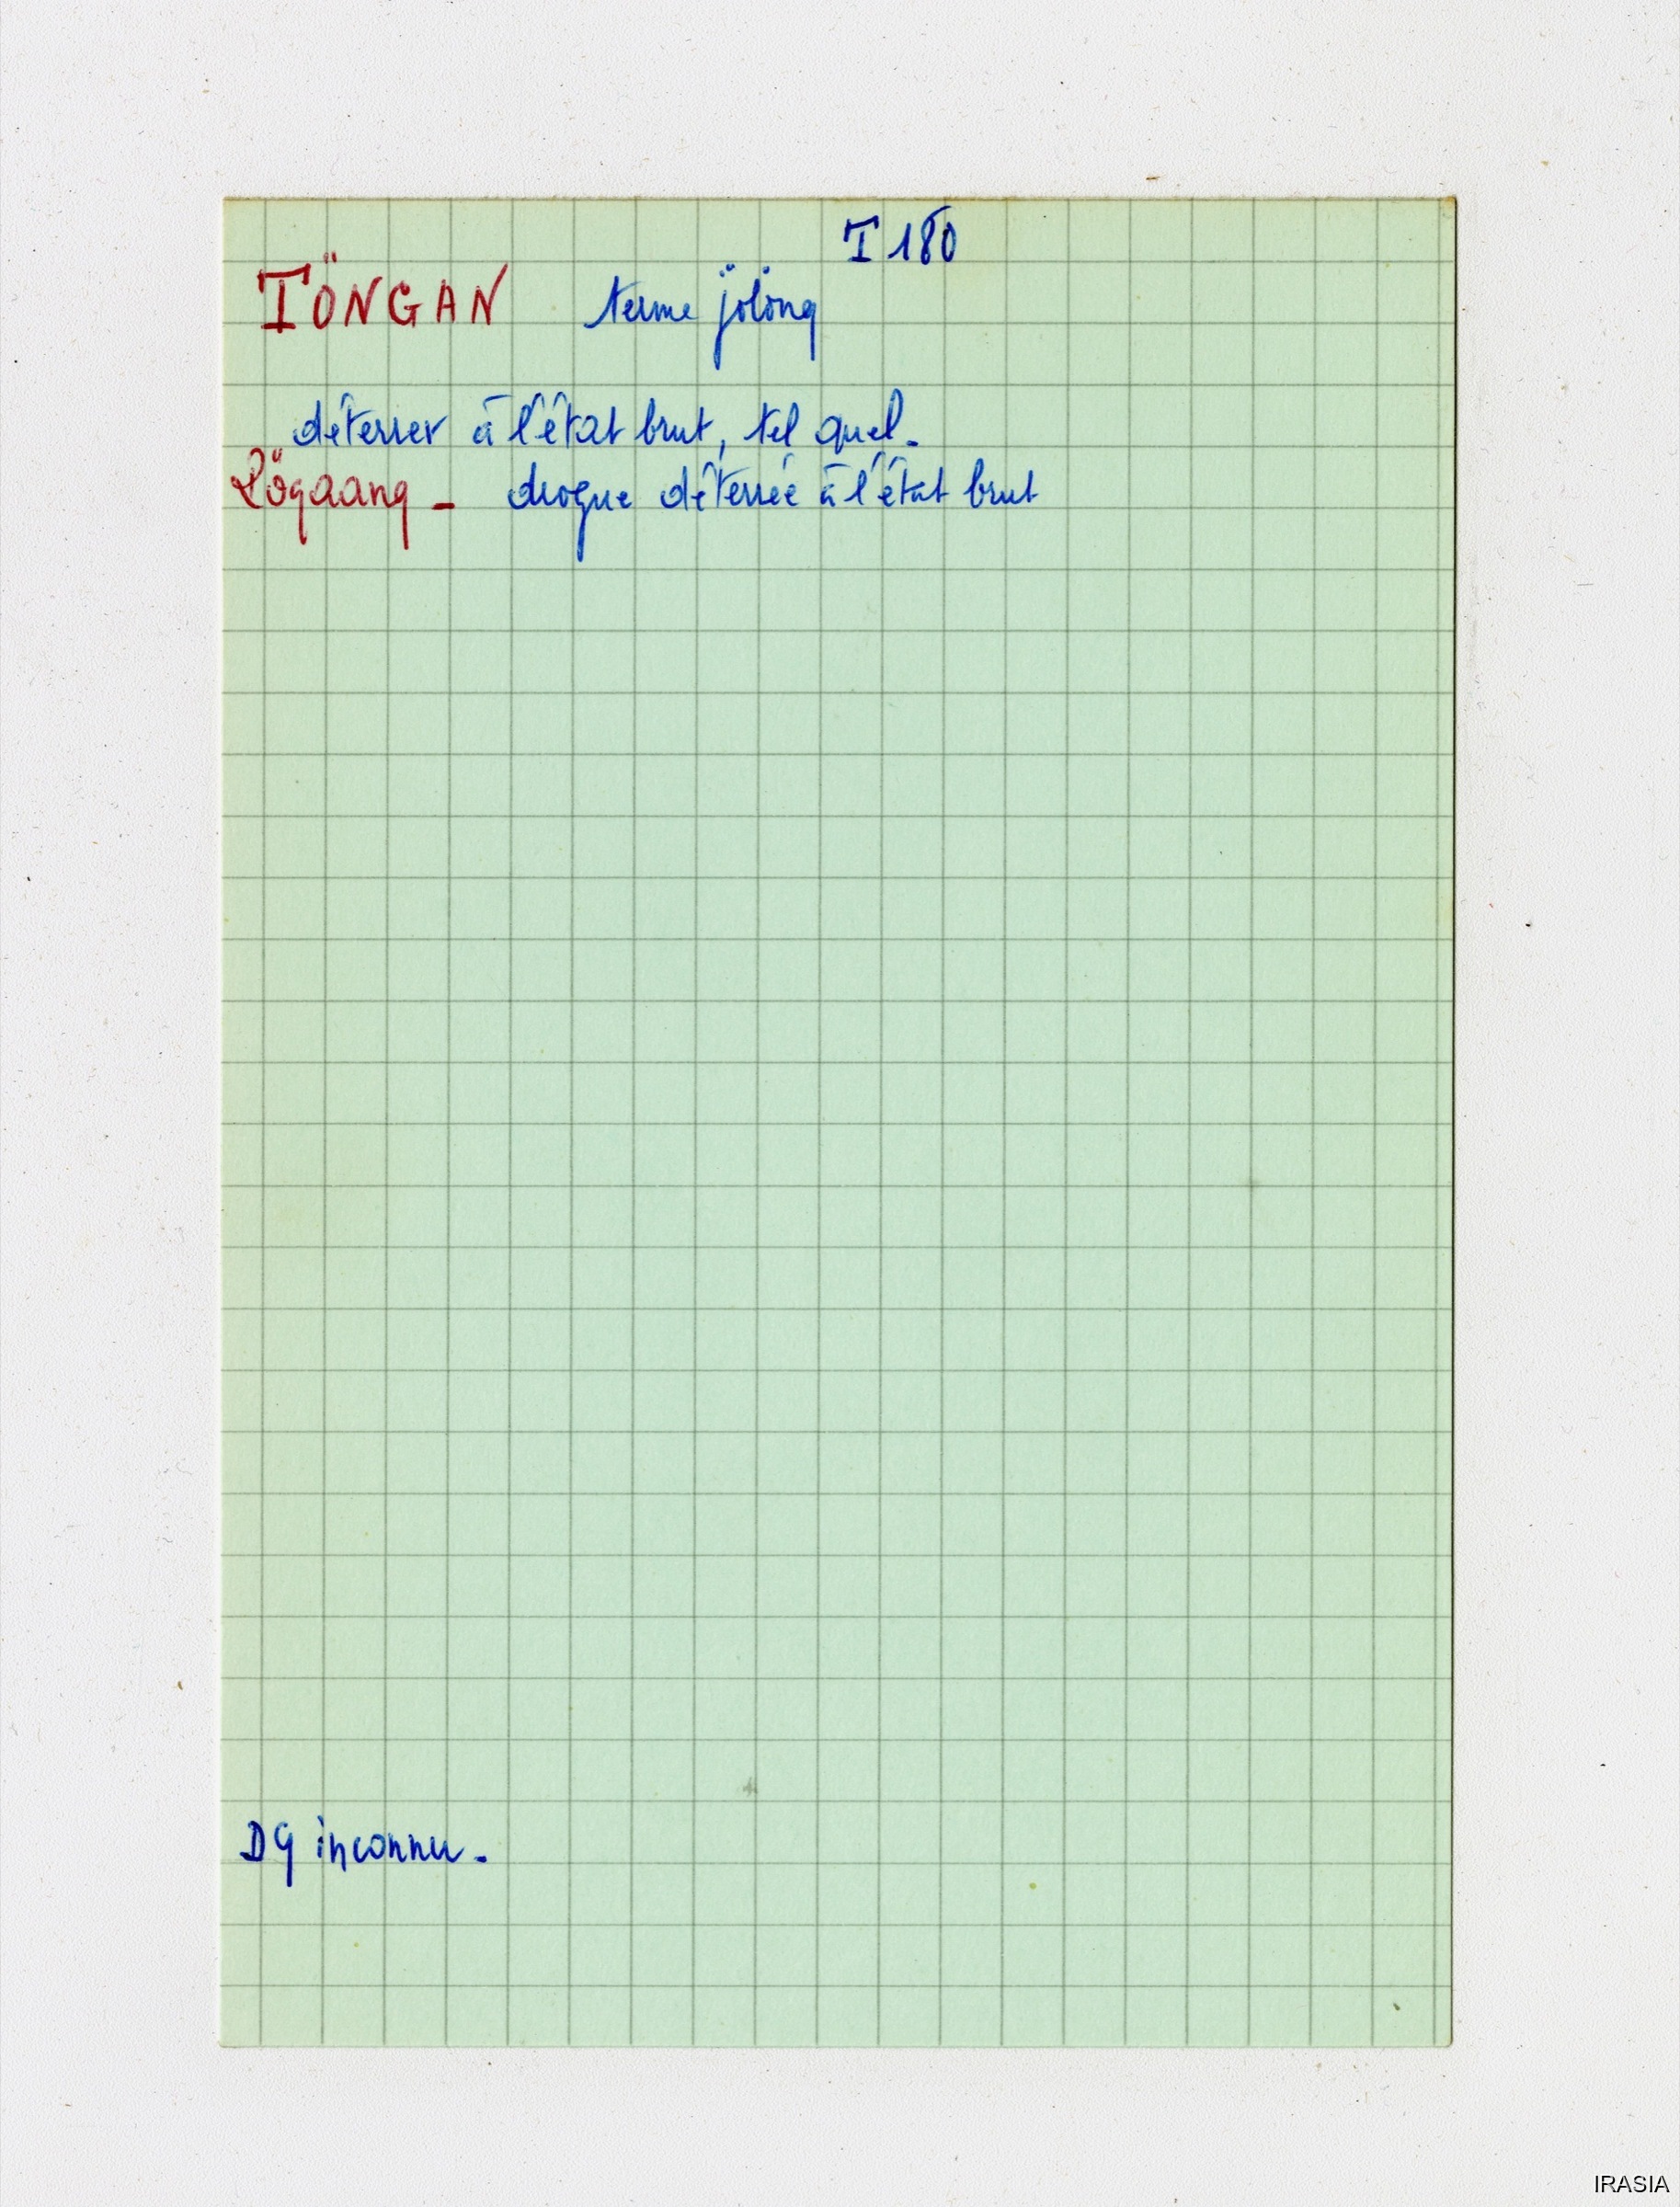 T 180
TÖNGAN terme jölöng
déterrer à l'état brut, tel quel.
Rögaang - drogue déterrée à l'état brut
DG inconnu.
IRASIA